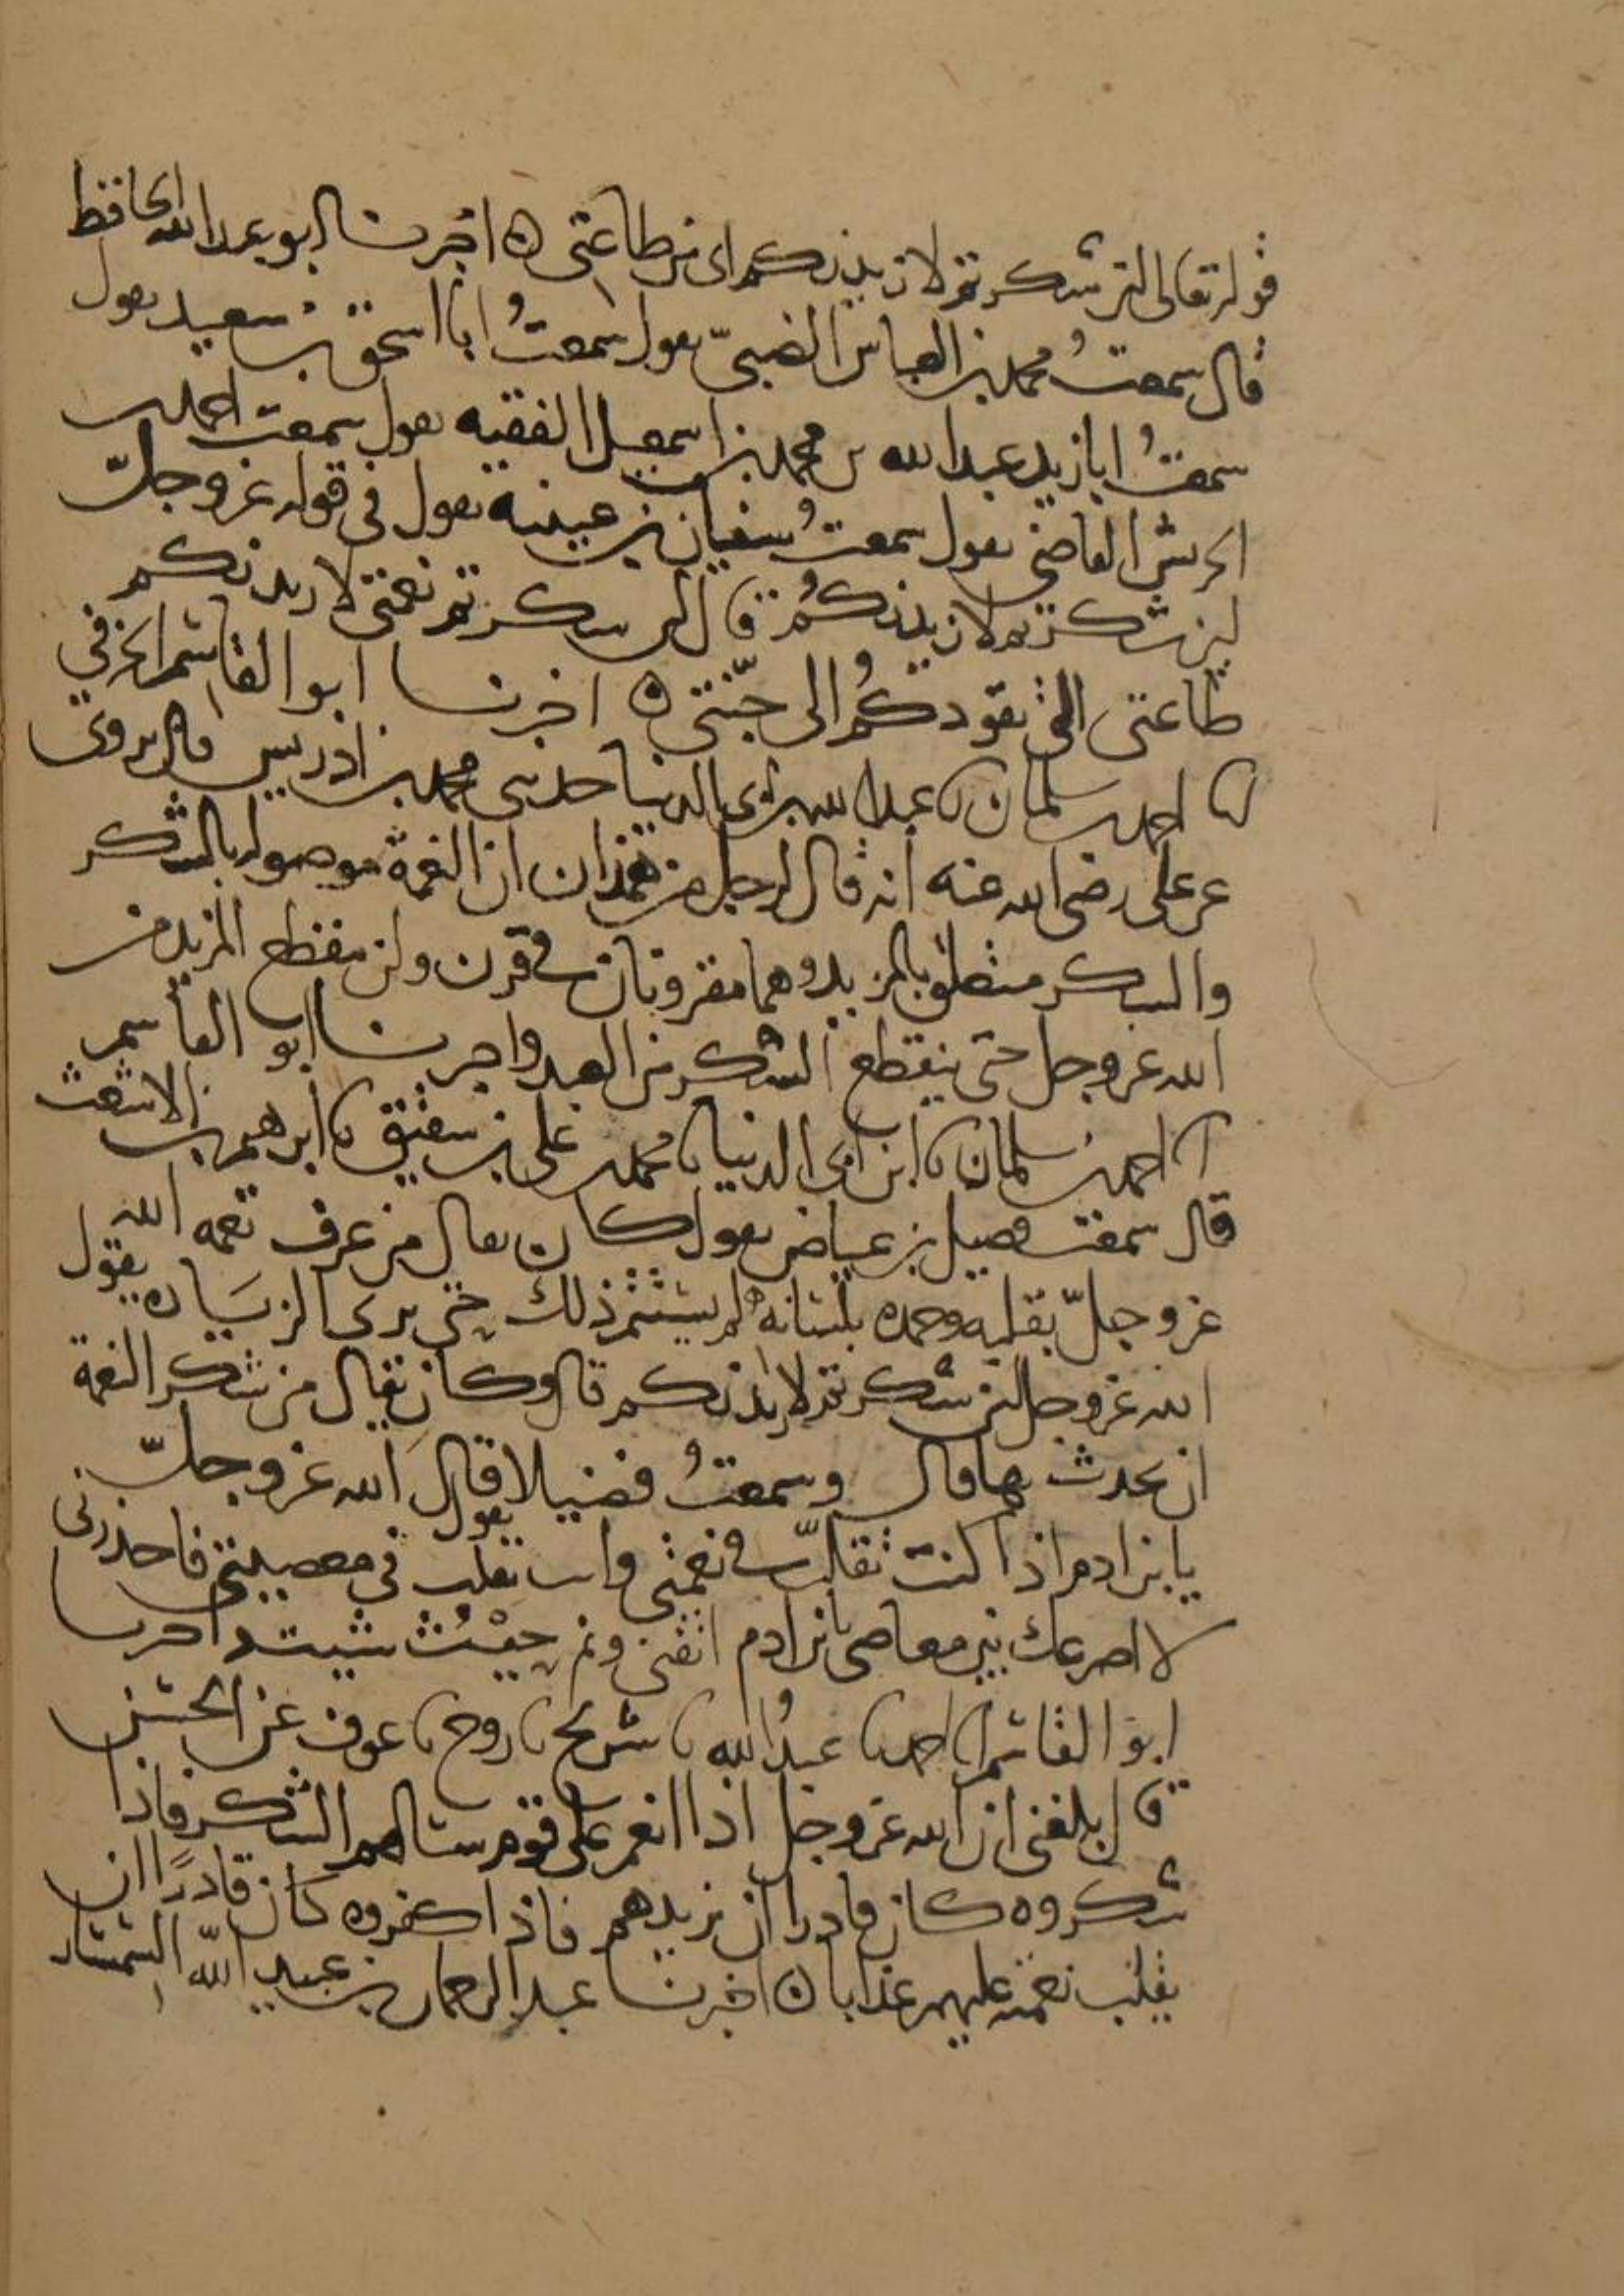 قوله تعالى لئن شكرتم لازيدنكم اى من طاعتى ه اخبرنا ابو عبدالله الحافظ
قال سمعتُ محمد بن العباس الضبىّ يقول سمعتُ ابا اسحق بن سعيد يقول
سمعتُ ابا زيد عبدالله بن محمد بن اسمعيل الفقيه يقول سمعت احمد بن
الحريش القاضى يقول سمعتُ سفيان بن عيينة يقول فى قوله عز وجلّ
لئن شكرتم لازيدنكُم قال لئن شكرتم نعمتى لازيدنكم
طاعتى التى تقودكُم الى جنّتى ه اخبرنا ابو القاسم الحرفي
نا احمد بن سلمان نا عبدالله بن ابى الدنيا حدثنى محمد بن ادريس قال يروى
عن على رضى الله عنه انه قال لرجل من همذان ان النعمة موصولة بالشكر
والشكر متعلق بالمزيد وهما مقرونان فى قرن ولن ينقطع المزيد من
الله عز وجل حتى ينقطع الشكر من العبد واخبرنا ابو القاسم
نا احمد بن سلمان نا ابن ابى الدنيا نا محمد بن على بن شقيق نا ابرهيم بن الاشعث
قال سمعت فضيل بن عياض يقول كان يقال من عرف نعمه الله
عز وجلّ بقلبه وحمده بلسانه لم يستتم ذلك حتى يرى الزيادة يقول
الله عز وجل لئن شكرتم لازيدنكم قال وكان يقال من شكر النعمة
ان يحدث بها قال وسمعتُ فضيلا يقول قال الله عز وجلّ
يا بن ادم اذا كنت تقلّب فى نعمتى وانت تقلب فى معصيتى فاحذرنى
لا اصرعك بين معاصى يا بن ادم اتقنى ونم حيْثُ شيت واخبرنا
ابو القاسم نا احمد نا عبدُالله نا شريح نا روح نا عوف عن الحسن
قال بلغنى ان الله عز وجل اذا انعم على قوم سالهم الشكر فاذا
شكروه كان قادرا ان يزيدهم فاذا كفروه كان قادرًا ان
يقلب نعمته عليهم عذابا ه اخبرنا عبد الرحمان بن عبيد اللّه السمسار